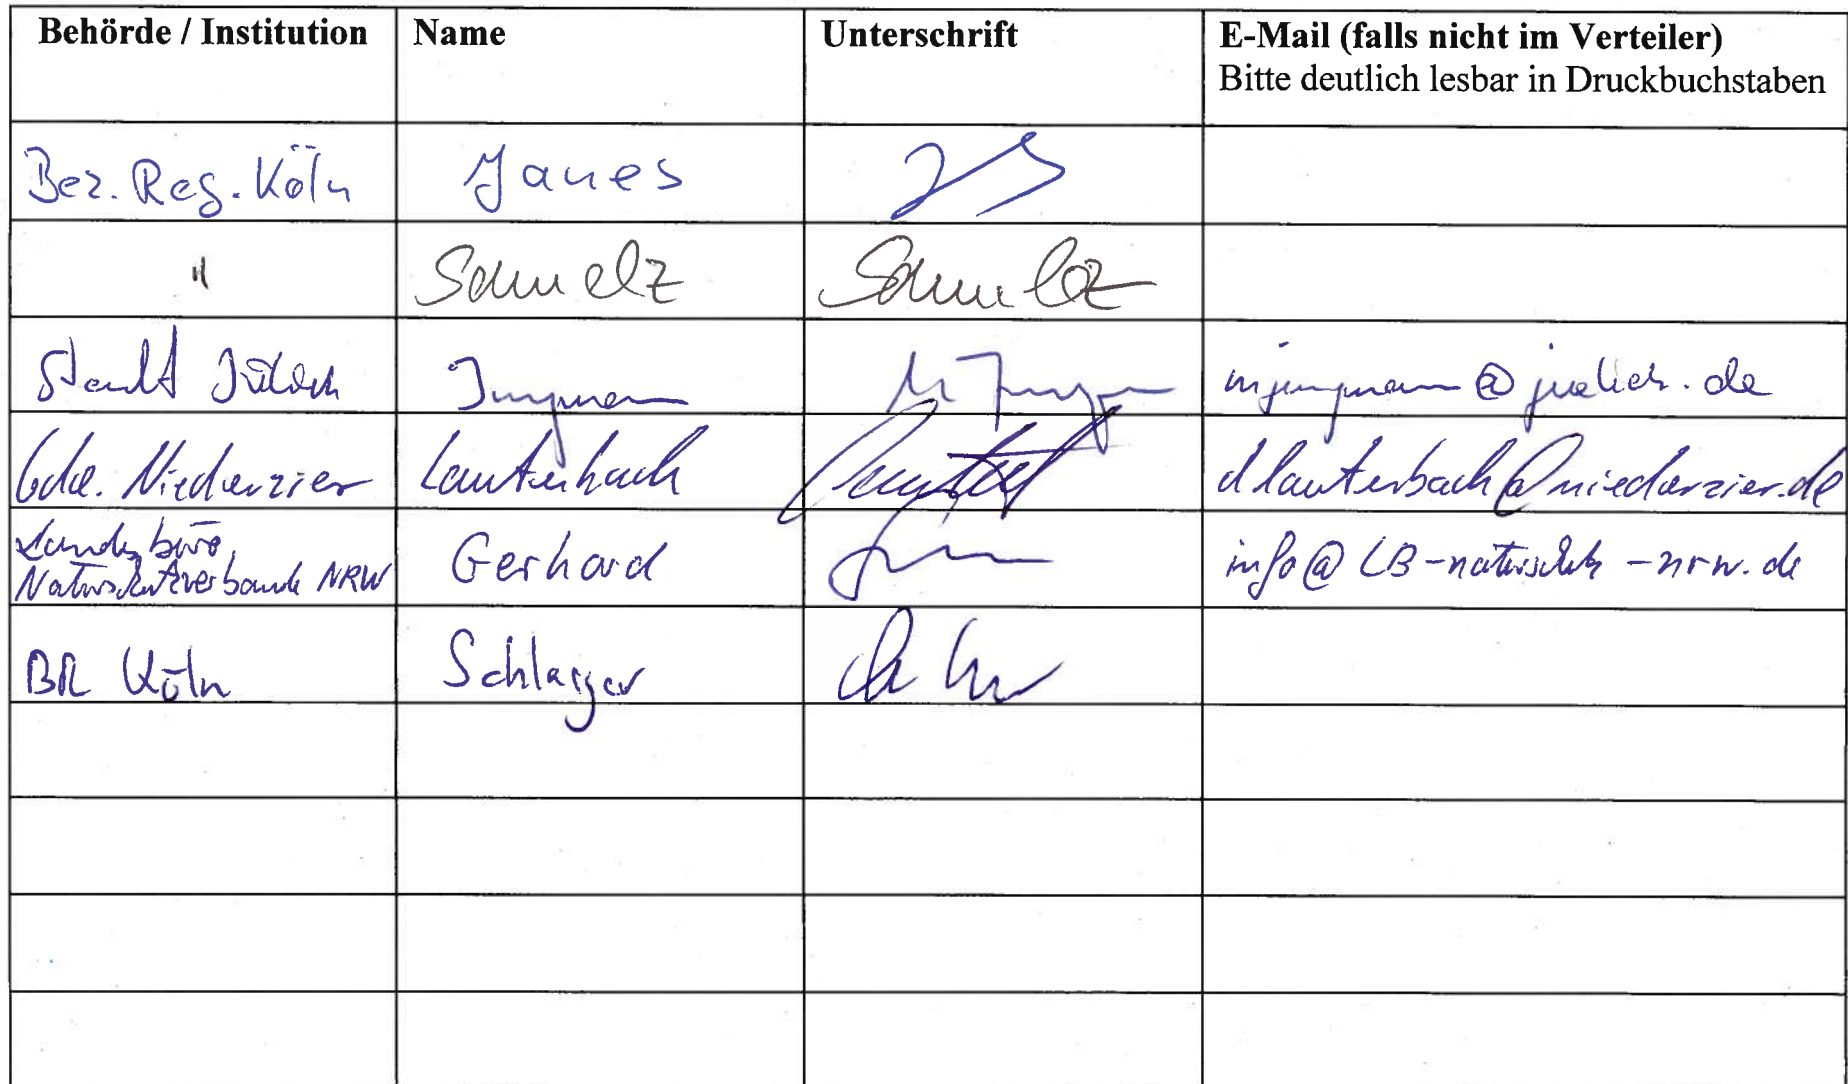 Behörde / Institution Name Unterschrift E-Mail (falls nicht im Verteiler)
Bitte deutlich lesbar in Druckbuchstaben
Bez. Reg. Köln Janes
" Schmelz Schmelz
Stadt Jülich Jungmann M. Jungmann mjungmann@juelich.de
Gde. Niederzier Lauterbach dlauterbach@niederzier.de
Landesbüro,
Naturschutzverbände NRW Gerhard info@LB-naturschutz-nrw.de
BR Köln